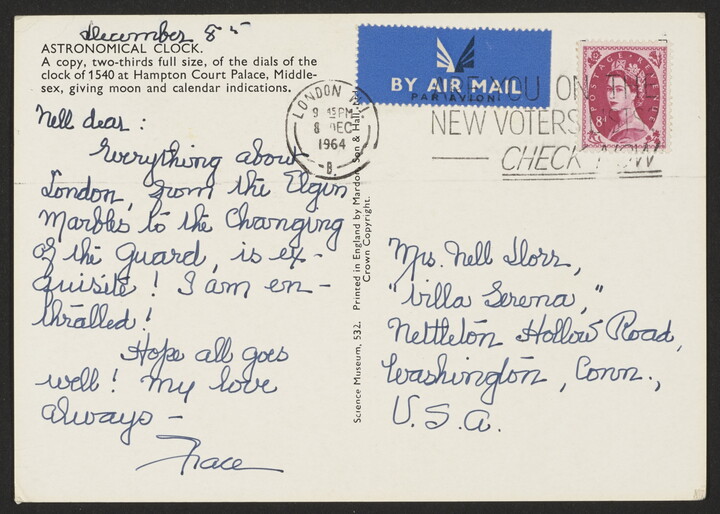 December 8th
ASTRONOMICAL CLOCK.
A copy, two-thirds full size, of the dials of the
clock of 1540 at Hampton Court Palace, Middle-
sex, giving moon and calendar indications.
Nell dear:
Everything about
London, from the Elgin
Marbles to the Changing
of the Guard, is ex-
quisite! I am en-
thralled!
Hope all goes
well! My love
always –
Grace
Science Museum, 532. Printed in England by Mardon, Son & Hall, Ltd.
Crown Copyright.
BY AIR MAIL
PAR AVION
LONDON
9 45 PM
8 DEC
1964
B
ARE YOU ON THE
NEW VOTERS
CHECK NOW
POSTAGE
REVENUE
8D
Mrs. Nell Dorr,
"Villa Serena,"
Nettleton Hollow Road,
Washington, Conn.,
U.S.A.